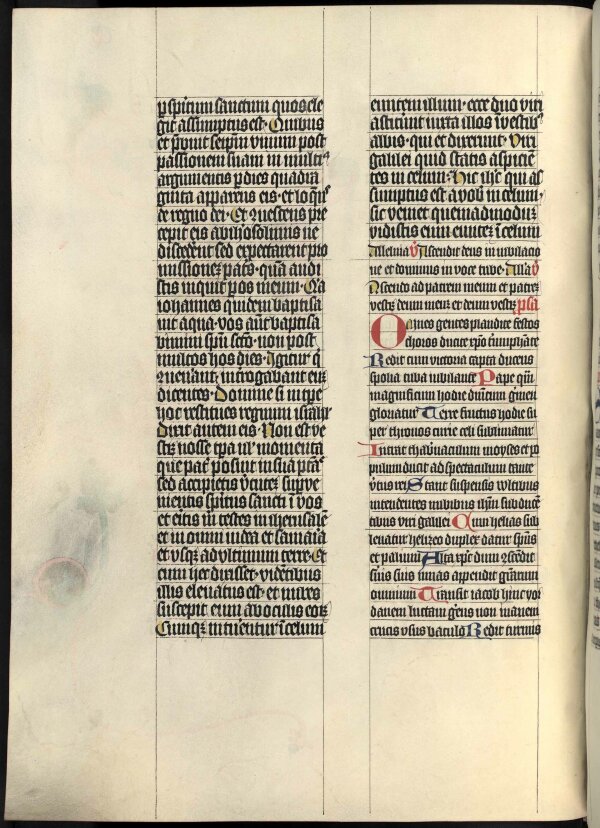 p spiritum sanctum quos ele
git assumptus est. Quibus
et p̄buit seip̄m uiuum post
passionem suam in multis
argumentis p dies quadra
ginta apparens eis. et loqn̄s
de regno dei. Et uescens pre
cepit eis ab iherosolimis ne
discederent sed expectarent pro
missionem patris. quā audi
stis inquit per os meum. Quia
iohannes quidem baptiza
uit aqua. vos aūt baptiza
bimini spū sc̄o. non post
multos hos dies. Igitur q
uenerant. interrogabant eū
dicentes. Domine si in tp̄e
hoc restitues regnum isrl̄
Dixit autem eis. Non est ve
strum nosse tp̄a uel momenta
que pat̄ posuit in sua ptāte
sed accipietis v̄tutē superue
nientis spiritus sancti ī vos
et eritis m̄ testes in iherusalē
et in omni iudea et samaria
et vsq; ad vltimum terre. Et
cum hec dixisset. videntibus
illis eleuatus est. et nubes
suscepit eum ab oculis eoꝝ
Cumq; intuerentur ī celum
euntem illum. ecce duo viri
astiterunt iuxta illos ī vestib
albis. qui et dixerunt. Viri
galilei quid statis aspicien
tes in celum. Hic ihc̄ qui as
sumptus est a vobis in celum.
sic veniet quemadmodum
vidistis eum euntē ī celum
Alleluia v̄ Ascendit deus in iubilacio
ne et dominus in voce tube. Alla v̄
Ascendo ad patrem meum et patrem
vestrum deum meum et deum vestrum psa
Omnes gentes plaudite festos
choros ducite xp̄o triumphante
Redit cum victoria capta ducens
spolia tuba iubilante Pape qm̄
magnificum hodie dm̄cum
gloriatur Terre fructus hodie su
per thronos curie celi sublimatur
Intrat thabernaculum moyses et po
pulum ducit ad spectaculum tante
v̄tutis rei Stant suspensis vultibus
intendentes nubibus ihm̄ subducē
tibus viri galilei Cum helias sub
leuatur helizeo duplex datur spūs
et pallium Alta xp̄c dum ascēdit
suis suis mnas appendit grārum
omnium Transit iacob hinc ior
danem luctam gerens non inanem
crucis vsus baculo Redit turmis